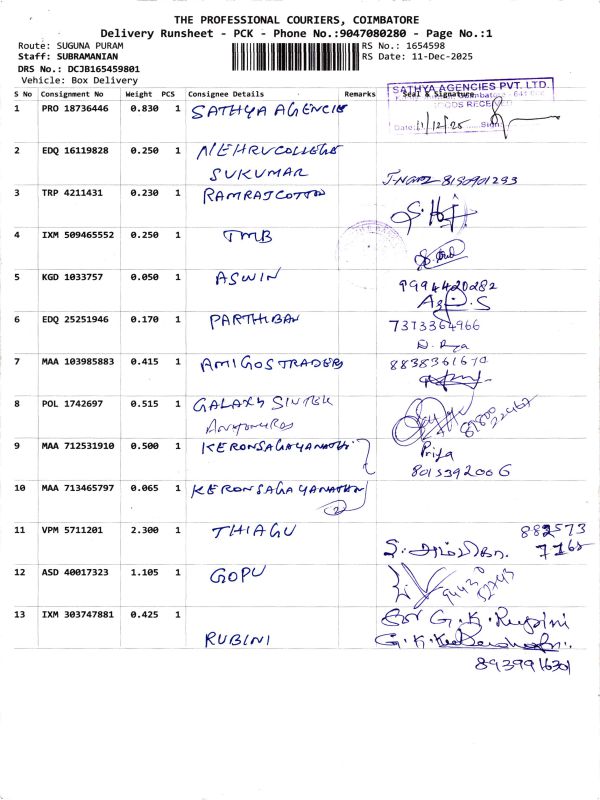 THE PROFESSIONAL COURIERS, COIMBATORE
Delivery Runsheet - PCK - Phone No.:9047080280 - Page No.:1
Route: SUGUNA PURAM
RS No.: 1654598
Staff: SUBRAMANIAN
RS Date: 11-Dec-2025
DRS No.: DCJB165459801
Vehicle: Box Delivery
S No Consignment No Weight PCS Consignee Details Remarks Seal & Signature
SATHYA AGENCIES PVT. LTD.
GOODS RECEIVED
Date: 11/12/25 Sign
1 PRO 18736446 0.830 1 SATHYA AGENCIE
2 EDQ 16119828 0.250 1 NEHRU COLLEGE
SUKUMAR
3 TRP 4211431 0.230 1 RAMRAJ COTTON
4 IXM 509465552 0.250 1 TMB
5 KGD 1033757 0.050 1 ASWIN 9994420282
6 EDQ 25251946 0.170 1 PARTHIBAN 7373364966
7 MAA 103985883 0.415 1 AMIGOS TRADERS 8838361670
8 POL 1742697 0.515 1 GALAXY
9 MAA 712531910 0.500 1 KERONSAGAYANATHN Priya
8015392006
10 MAA 713465797 0.065 1 KERONSAGAYANATHN
2
11 VPM 5711201 2.300 1 THIAGU 882573
7165
12 ASD 40017323 1.105 1 GOPU
13 IXM 303747881 0.425 1 for G.K. Rubini
RUBINI
8939916301